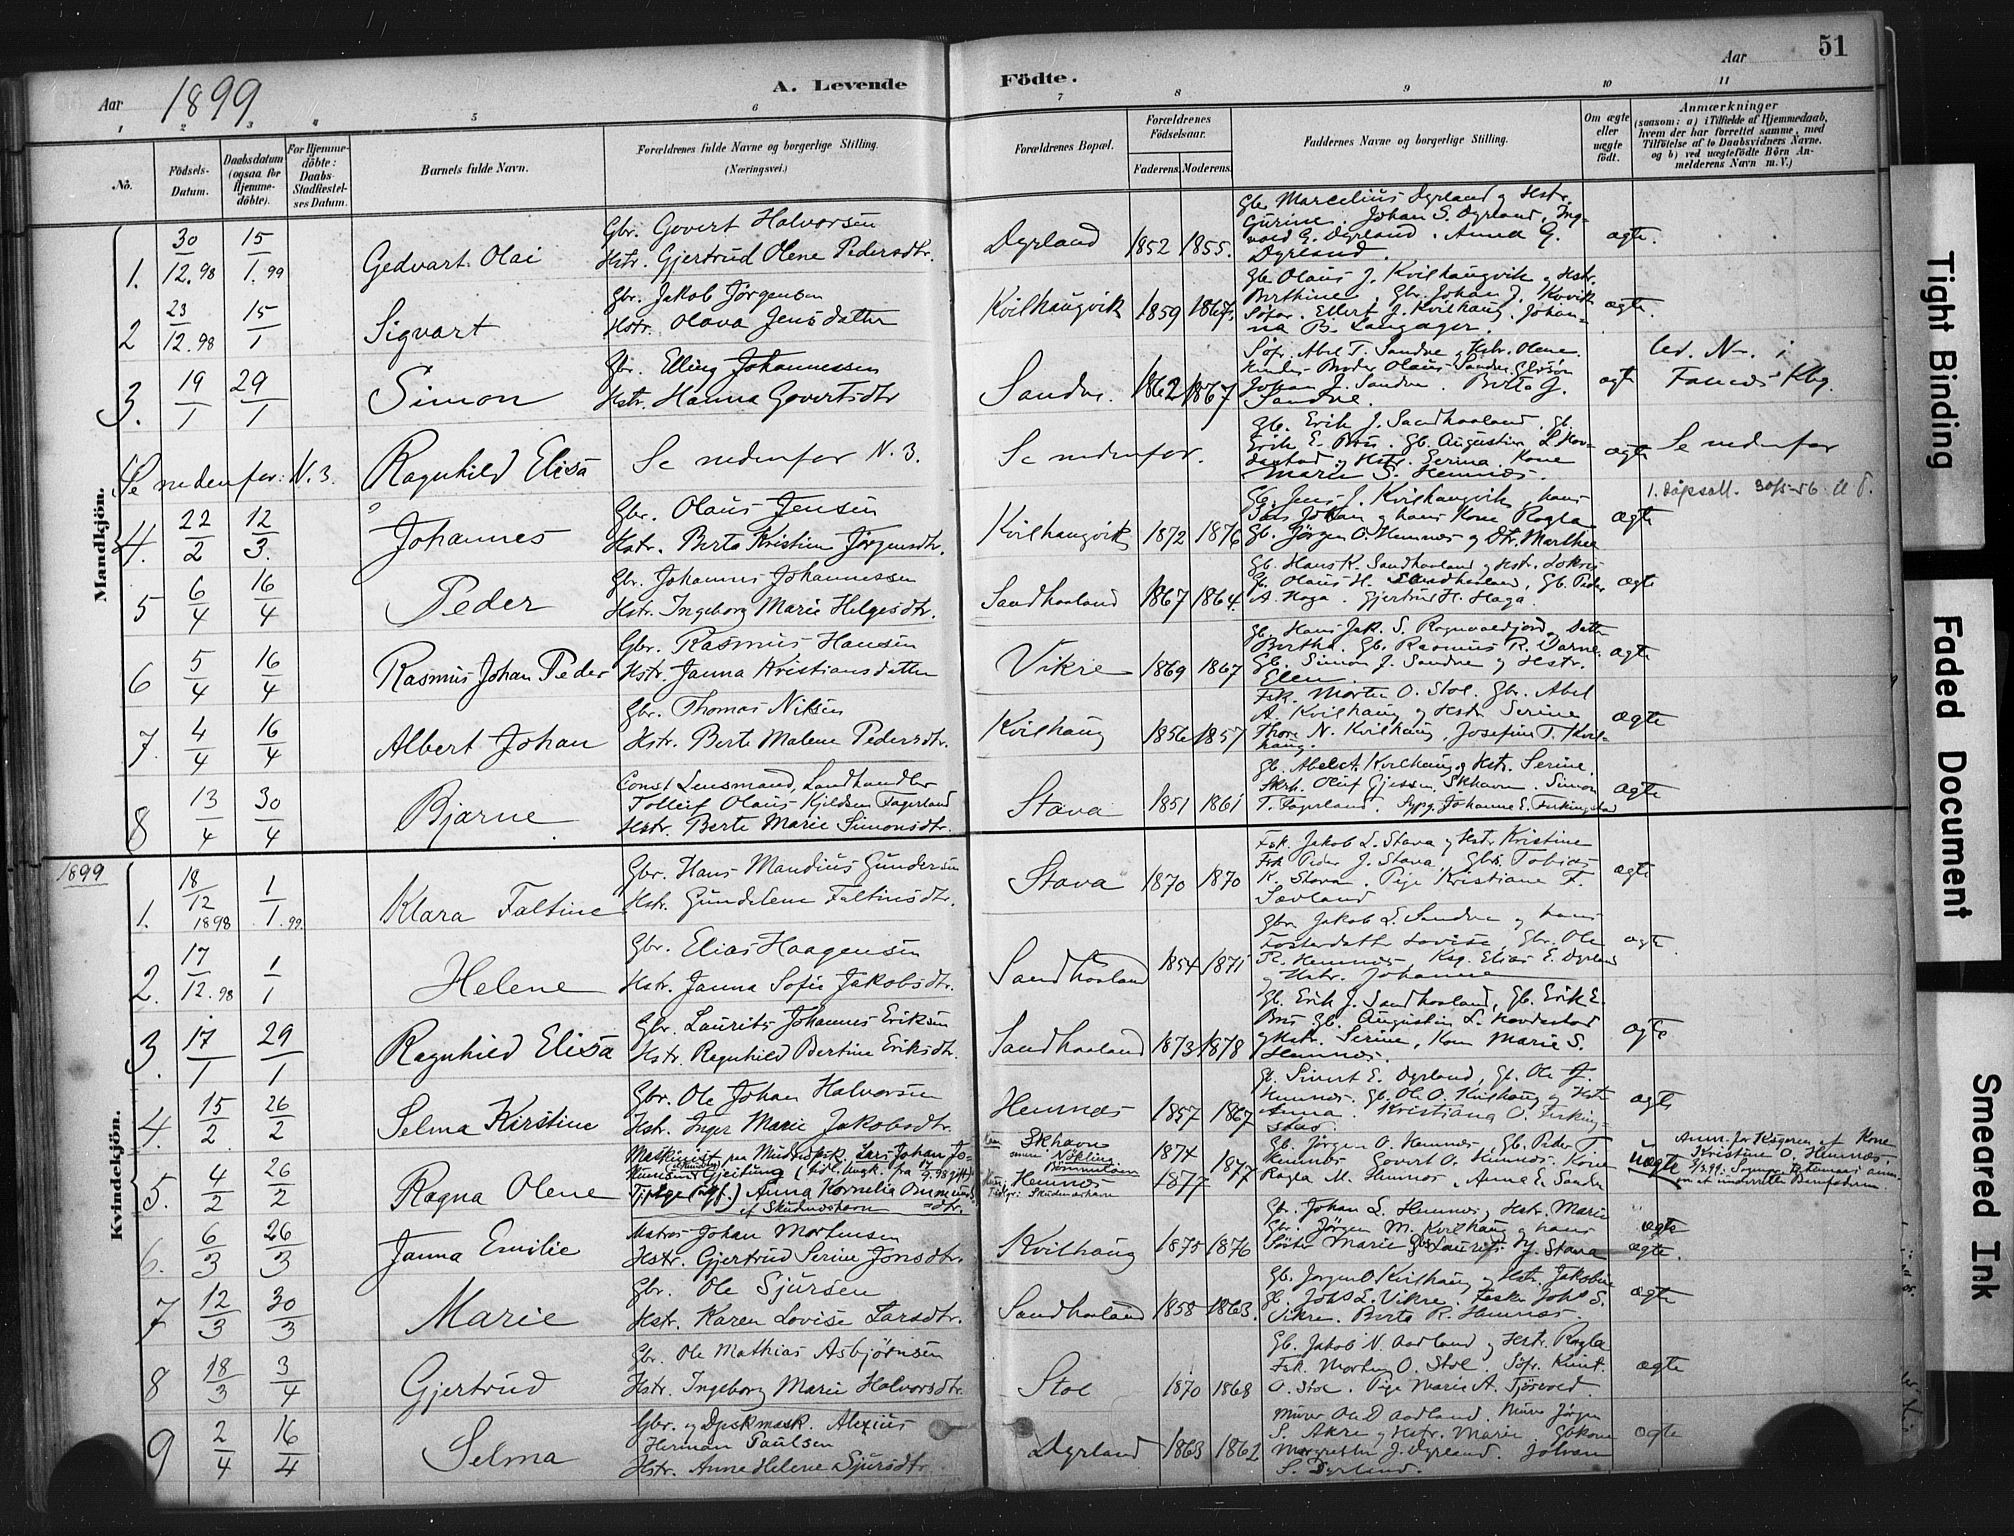 51
Aar 1899
A. Levende Födte.
Aar
1 2 3 4 5 6 7 8 9 10 11
No.
Födsels-Datum.
Daabsdatum (ogsaa for Hjemmedöbte).
For Hjemmedöbte: Daabs-Stadfæstelses Datum.
Barnets fulde Navn.
Forældrenes fulde Navne og borgerlige Stilling. (Næringsvei.)
Forældrenes Bopæl.
Forældrenes Födselsaar.
Faderens. Moderens.
Faddernes Navne og borgerlige Stilling.
Om ægte eller uægte födt.
Anmærkninger
(saasom: a) i Tilfælde af Hjemmedaab,
hvem der har forrettet samme, med
Tilföielse af to Daabsvidners Navne.
og b) ved uægtefödte Börn Anmelderens Navn m. V.)
Mandkjön.
1. 30/12.98 15/1.99 Gedvart Olai
Gbr. Govert Halvorsen
Hstr. Gjertrud Olene Pedersdtr.
Dyrland 1852 1855.
Gbr. Marcelius Dyrland og Hstr.
Gurine. Johan S. Dyrland. Ing-
vald G. Dyrland. Anna G.
Dyrland.
ægte.
2 23/12.98 15/1 Sigvart
Gbr. Jakob Jørgensen
Hstr. Olava Jensdatter
Kvilhaugvik 1859 1867.
Gbr. Olaus J. Kvilhaugvik og Hstr.
Berthine. Gbr. Johan J.
Søfar. Ellert J. Kvilhaug. Johan-
na B. Langager.
ægte.
3. 19/1 29/1 Simon
Gbr. Elling Johannessen
Hstr. Hanna Govertsdtr
Sandve. 1862 1867
Søfr. Abel T. Sandve og Hstr. Olene.
Johan J. Sandve. Berta J.
Sandve.
ægte
Se nedenfor: N. 3. Ragnhild Elisa
Se nedenfor N. 3.
Se nedenfor.
Gb. Erik J. Sandhaaland. Gb.
Erik E. Brus. Gb. Augustin L. Hov-
destad og Hstr. Serina. Kone
Marie S. Hemnes.
ægte
Se nedenfor
4. 22/2 12/3. Johannes
Gbr. Olaus Jensen
Hstr. Berta Kristine Jørgensdtr.
Kvilhaugvik 1872 1876
Gb. Jens J. Kvilhaugvik, hans
Søn Johan og hans Kone Ragla
Gb. Jørgen O. Hemnes og Dtr. Marthea
ægte
5 6/4 16/4 Peder
Gbr. Johannes Johannessen
Hstr. Ingeborg Marie Helgesdtr.
Sandhaaland 1867 1864.
Gb. Hans K. Sandhaaland og Hstr.
Gb. Olaus H. Sandhaaland, Gb. Peder
A. Haga. Gjertrud H. Haga.
ægte
6 5/4 16/4 Rasmus Johan Peder
Gbr. Rasmus Hansen
Hstr. Janna Kristiansdatter
Vikre 1869 1867
Gb. Hans Jak. S. Rognvaldjord. Datter
Bertha. Gb. Rasmus R.
Gb. Simon J. Sandve og Hstr.
Ellen.
ægte
7. 4/4 16/4 Albert Johan
Gbr. Thomas Nilsen
Hstr. Berte Malene Pedersdtr.
Kvilhaug 1856 1857
Fsk. Morten O. Stol. Gbr. Abel
A. Kvilhaug og Hstr Serine
Thore N. Kvilhaug, Josefine T. Kvil-
haug.
ægte
8 13/4 30/4 Bjarne
Const Lensmand, Landhandler
Tolleif Olaus Kjeldsen Fagerland
Hstr. Berte Marie Simonsdtr.
Stava 1851 1861
Gb. Abel A. Kvilhaug og Hstr. Serine.
Oluf Gjessen, Skhavn. Simon
T. Fagerland. Johanne E. Ferkingstad
ægte
1899
Kvindekjön.
1. 18/12 1898 1/1.99 Klara Faltine
Gbr. Hans Mandius Gundersen
Hstr. Gundelene Faltinsdtr.
Stava 1870 1870
Fsk. Jakob L. Stava og Hstr Kristine
Fsk Peder J. Stava. Gbr. Tobias
K. Stava. Pige Kristiane F.
Sævland
ægte
2. 17/12.98 1/1 Helene
Gbr. Elias Haagensen
Hstr. Janna Sofie Jakobsdtr.
Sandhåland 1854 1871
Gbr. Jakob L. Sandve og hans
Fosterdatter Lovise, Gbr. Ole
R. Hemnes, Elias E. Dyrland
og Hstr. Johanne
ægte
3. 17/1 29/1 Ragnhild Elisa
Gbr. Laurits Johannes Eriksen
Hstr. Regnhild Bertine Eriksdtr.
Sandhaaland 1873 1878
Gb. Erik J. Sandhaaland, Gb. Erik E.
Brus Gb. Augustin L. Hovdestad
og Hstr. Serine, Kone Marie S.
Hemnes.
ægte
4. 15/2 26/2 Selma Kirstine
Gbr. Ole Johan Halvorsen
Hstr. Inger Marie Jakobsdtr.
Hemnes 1857 1867
Gb. Sivert E. Dyrland, Gb. Ole J.
Hemnes. Gb. Ole O. Kvilhaug og Hstr
Anna. Kristiana O. Ferking-
stad
ægte
5. 4/2 26/2 Ragna Olene
Maskinist paa Lars Johan
Geitung
Tjpige (ugf.) Anna Kornelia Osmunds-
dtr.
af Skudneshavn
Skhavn
Hemnes
1874 1877
1877
Gb. Jørgen O. Hemnes, Gb. Peder T.
Hemnes Govert O. Hemnes, Kone
Ragla M. Hemnes, Anna E. Sandve
uægte
Kristine O. Hemnes
6. 6/3 26/3 Janna Emilie
Matros Johan Mortensen
Hstr. Gjertrud Serine Jonsdtr.
Kvilhaug 1875 1876
Gb. Johan L. Hemnes og Hstr. Marie
Gbr. Jørgen M. Kvilhaug og hans
Søster Marie Gbr Laurits H. Stava
ægte
ægte.
7 12/3 30/3 Marie
Gbr. Ole Sjursen
Hstr. Karen Lovise Larsdtr.
Sandhaaland 1858 1863.
Gb. Jørgen O Kvilhaug og Hstr. Jakobine
Gb. Johs L. Vikre. Johs S.
Vikre. Berta R. Hemnes
ægte
8 18/3 3/4 Gjertrud
Gbr. Ole Mathias Asbjørnsen
Hstr. Ingeborg Marie Halvorsdtr.
Stol 1870 1868
Gb. Jakob N. Aadland og Hstr. Ragla
Fsk. Morten O. Stol. Søfr. Knut
O. Stol. Pige Marie A. Tjøsvold.
ægte
9 2/4 16/4 Selma
Gbr. og Dpskmask. Alexius
Herman Paulsen
Hstr. Anne Helene Sjursdtr
Dyrland 1863 1862
Murer Ole D Aadland. Murer Jørgen
S. Akre og Hstr. Marie. Gbkone
Margrethe J. Dyrland. Johan
S. Dyrland.
ægte
Tight Binding
Faded Document
Smeared Ink